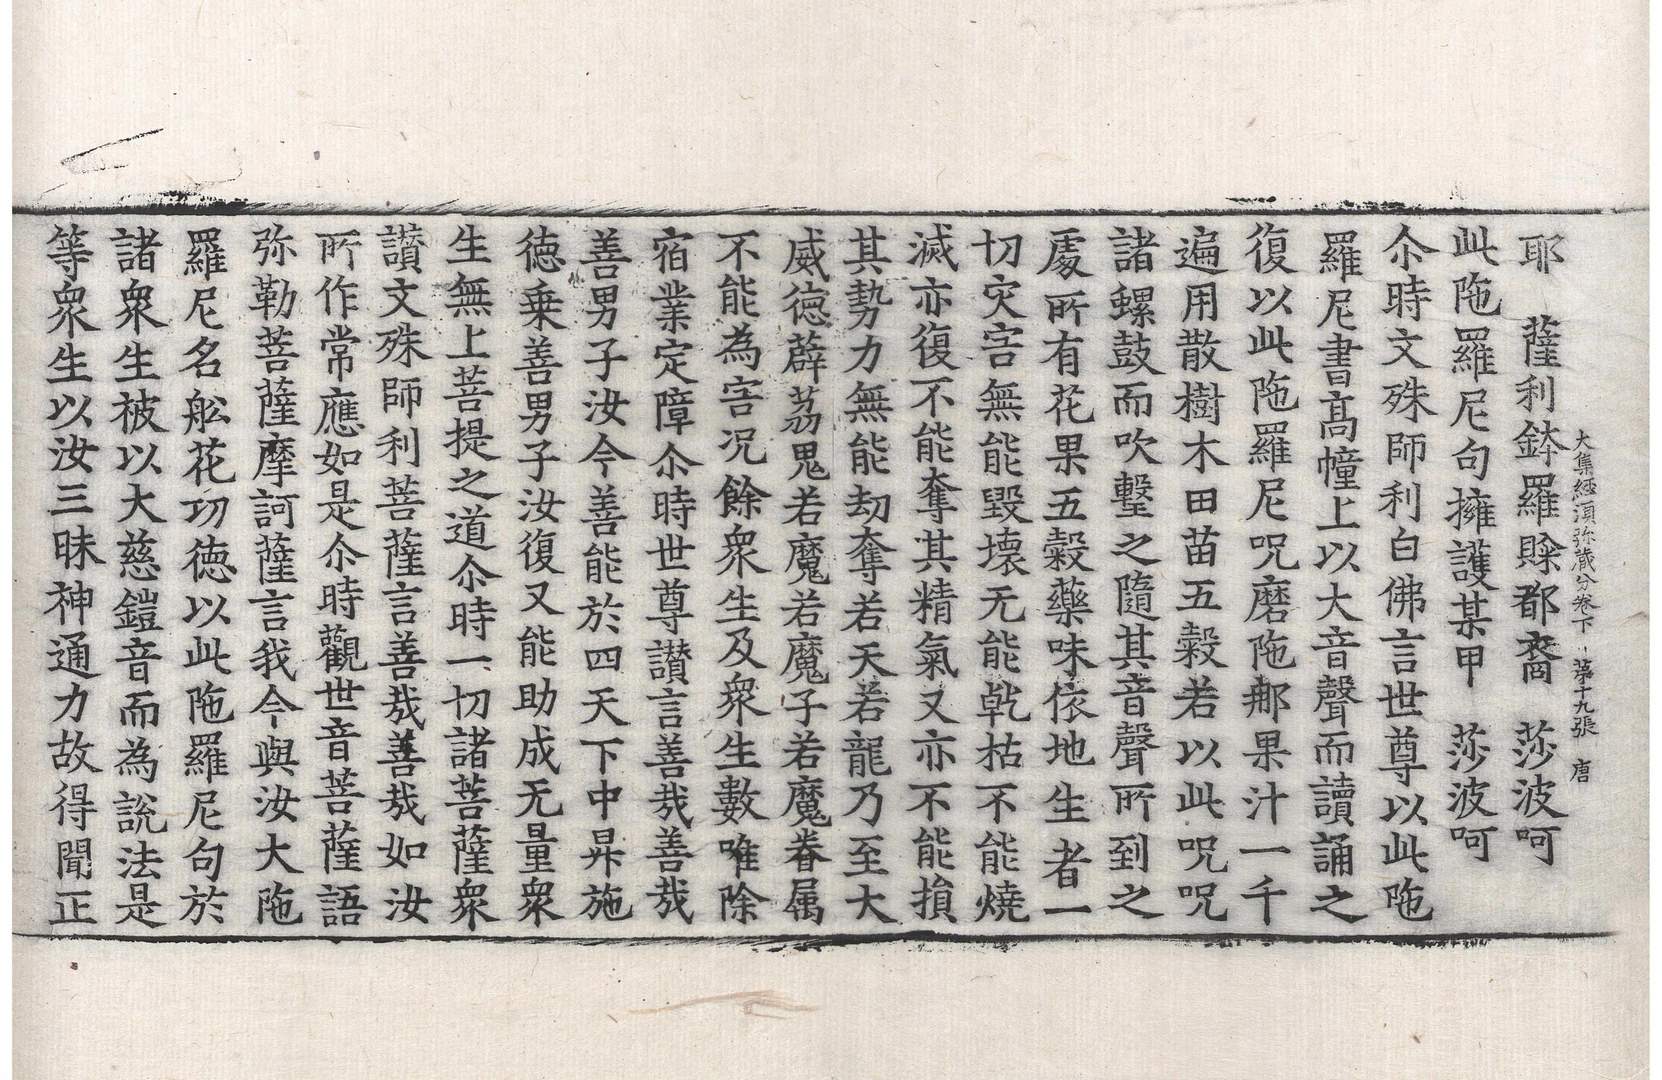 大集經須弥藏分卷下　第十九張　唐
耶　薩利鉢羅賖都裔　莎波呵
此陁羅尼句擁護某甲　莎波呵
尒時文殊師利白佛言世尊以此陁
羅尼書高幢上以大音聲而讀誦之
復以此陁羅尼呪磨陁郍果汁一千
遍用散樹木田苗五穀若以此呪呪
諸螺鼓而吹擊之隨其音聲所到之
處所有花果五穀藥味依地生者一
切灾害無能毀壞无能乹枯不能燒
滅亦復不能奪其精氣又亦不能損
其勢力無能劫奪若天若龍乃至大
威德薜荔鬼若魔若魔子若魔眷属
不能為害況餘衆生及衆生數唯除
宿業定障尒時世尊讃言善哉善哉
善男子汝今善能於四天下中昇施
德乗善男子汝復又能助成无量衆
生無上菩提之道尒時一切諸菩薩衆
讃文殊師利菩薩言善哉善哉如汝
所作常應如是尒時觀世音菩薩語
弥勒菩薩摩訶薩言我今與汝大陁
羅尼名舩花功德以此陁羅尼句於
諸衆生被以大慈鎧音而為說法是
等衆生以汝三昧神通力故得聞正